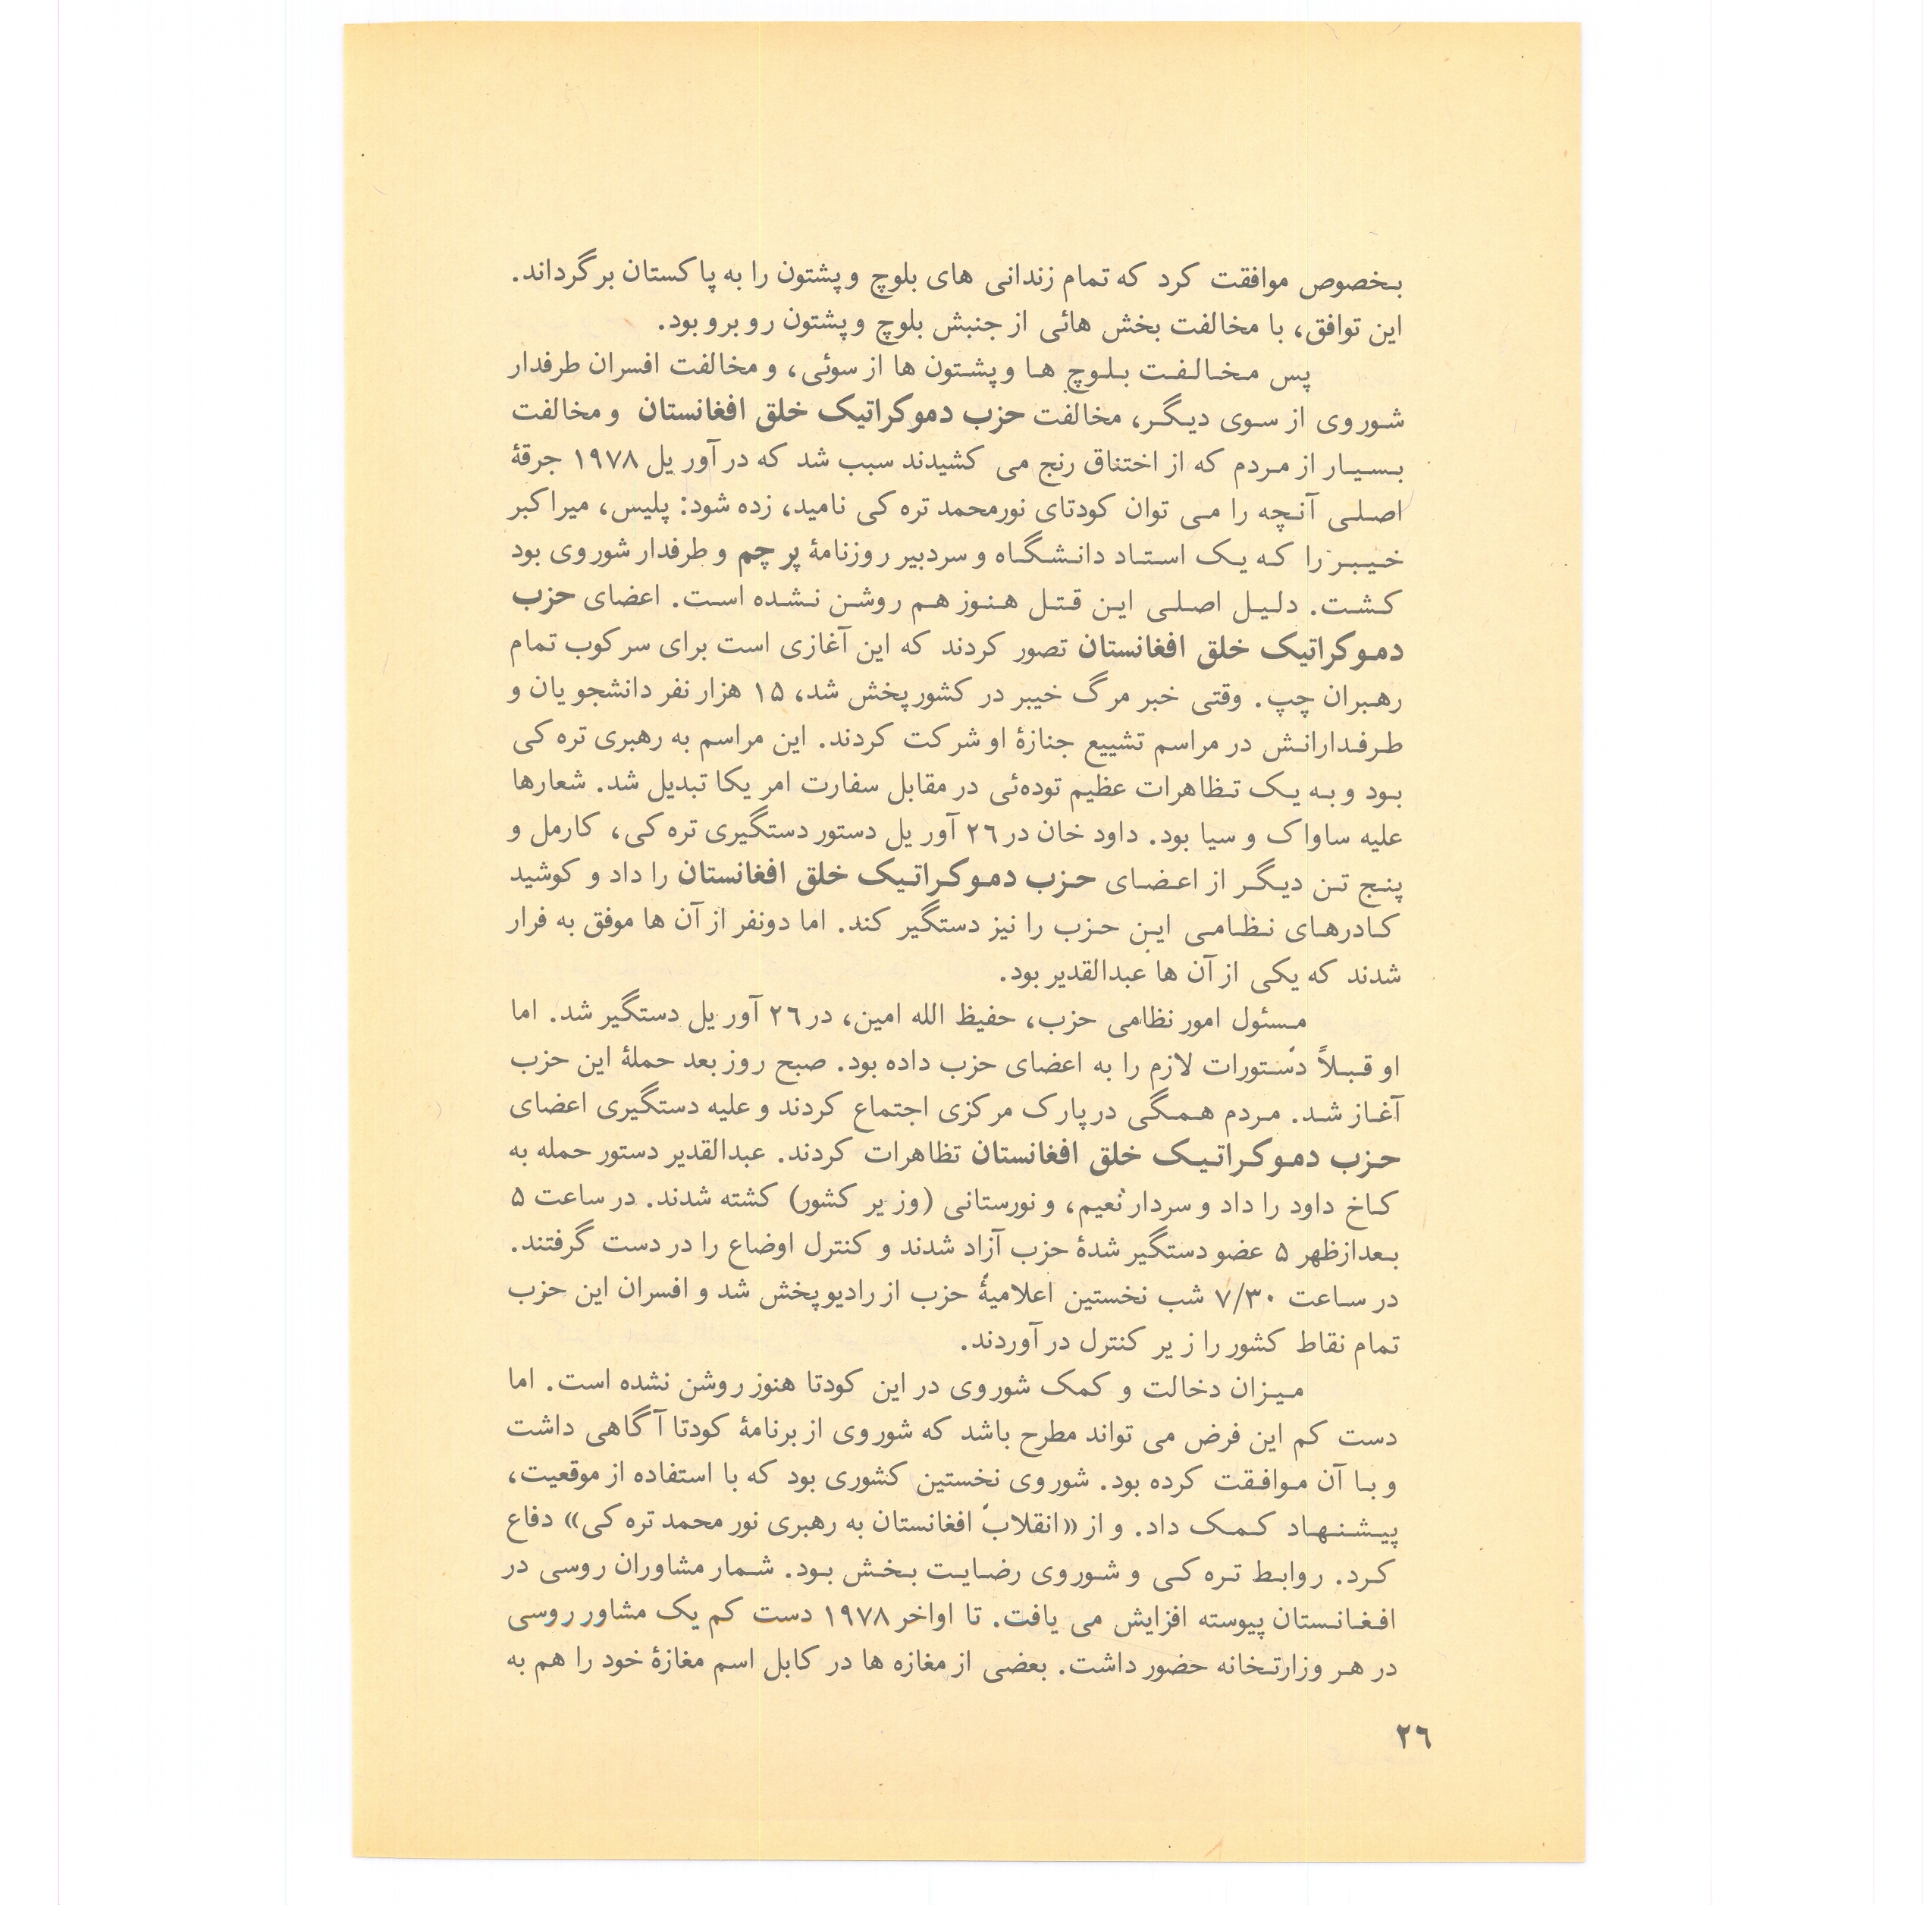 بخصوص موافقت کرد که تمام زندانی های بلوچ و پشتون را به پاکستان برگرداند.
این توافق، با مخالفت بخش هائی از جنبش بلوچ و پشتون روبرو بود.
پس مخالفت بلوچ ها و پشتون ها از سوئی، و مخالفت افسران طرفدار
شوروی از سوی دیگر، مخالفت حزب دموکراتیک خلق افغانستان و مخالفت
بسیار از مردم که از اختناق رنج می کشیدند سبب شد که در آوریل ۱۹۷۸ جرقۀ
اصلی آنچه را می توان کودتای نورمحمد تره کی نامید، زده شود: پلیس، میراکبر
خیبر را که یک استاد دانشگاه و سردبیر روزنامۀ پرچم و طرفدار شوروی بود
کشت. دلیل اصلی این قتل هنوز هم روشن نشده است. اعضای حزب
دموکراتیک خلق افغانستان تصور کردند که این آغازی است برای سرکوب تمام
رهبران چپ. وقتی خبر مرگ خیبر در کشور پخش شد، ۱۵ هزار نفر دانشجویان و
طرفدارانش در مراسم تشییع جنازۀ او شرکت کردند. این مراسم به رهبری تره کی
بود و به یک تظاهرات عظیم توده‌ئی در مقابل سفارت امریکا تبدیل شد. شعارها
علیه ساواک و سیا بود. داود خان در ۲۶ آوریل دستور دستگیری تره کی، کارمل و
پنج تن دیگر از اعضای حزب دموکراتیک خلق افغانستان را داد و کوشید
کادرهای نظامی این حزب را نیز دستگیر کند. اما دونفر از آن ها موفق به فرار
شدند که یکی از آن ها عبدالقدیر بود.
مسئول امور نظامی حزب، حفیظ الله امین، در ۲۶ آوریل دستگیر شد. اما
او قبلاً دستورات لازم را به اعضای حزب داده بود. صبح روز بعد حملۀ این حزب
آغاز شد. مردم همگی در پارک مرکزی اجتماع کردند و علیه دستگیری اعضای
حزب دموکراتیک خلق افغانستان تظاهرات کردند. عبدالقدیر دستور حمله به
کاخ داود را داد و سردار نعیم، و نورستانی (وزیر کشور) کشته شدند. در ساعت ۵
بعدازظهر ۵ عضو دستگیر شدۀ حزب آزاد شدند و کنترل اوضاع را در دست گرفتند.
در ساعت ۷/۳۰ شب نخستین اعلامیۀ حزب از رادیو پخش شد و افسران این حزب
تمام نقاط کشور را زیر کنترل درآوردند.
میزان دخالت و کمک شوروی در این کودتا هنوز روشن نشده است. اما
دست کم این فرض می تواند مطرح باشد که شوروی از برنامۀ کودتا آگاهی داشت
و با آن موافقت کرده بود. شوروی نخستین کشوری بود که با استفاده از موقعیت،
پیشنهاد کمک داد. و از «انقلاب افغانستان به رهبری نور محمد تره کی» دفاع
کرد. روابط تره کی و شوروی رضایت بخش بود. شمار مشاوران روسی در
افغانستان پیوسته افزایش می یافت. تا اواخر ۱۹۷۸ دست کم یک مشاور روسی
در هر وزارتخانه حضور داشت. بعضی از مغازه ها در کابل اسم مغازۀ خود را هم به
۲۶